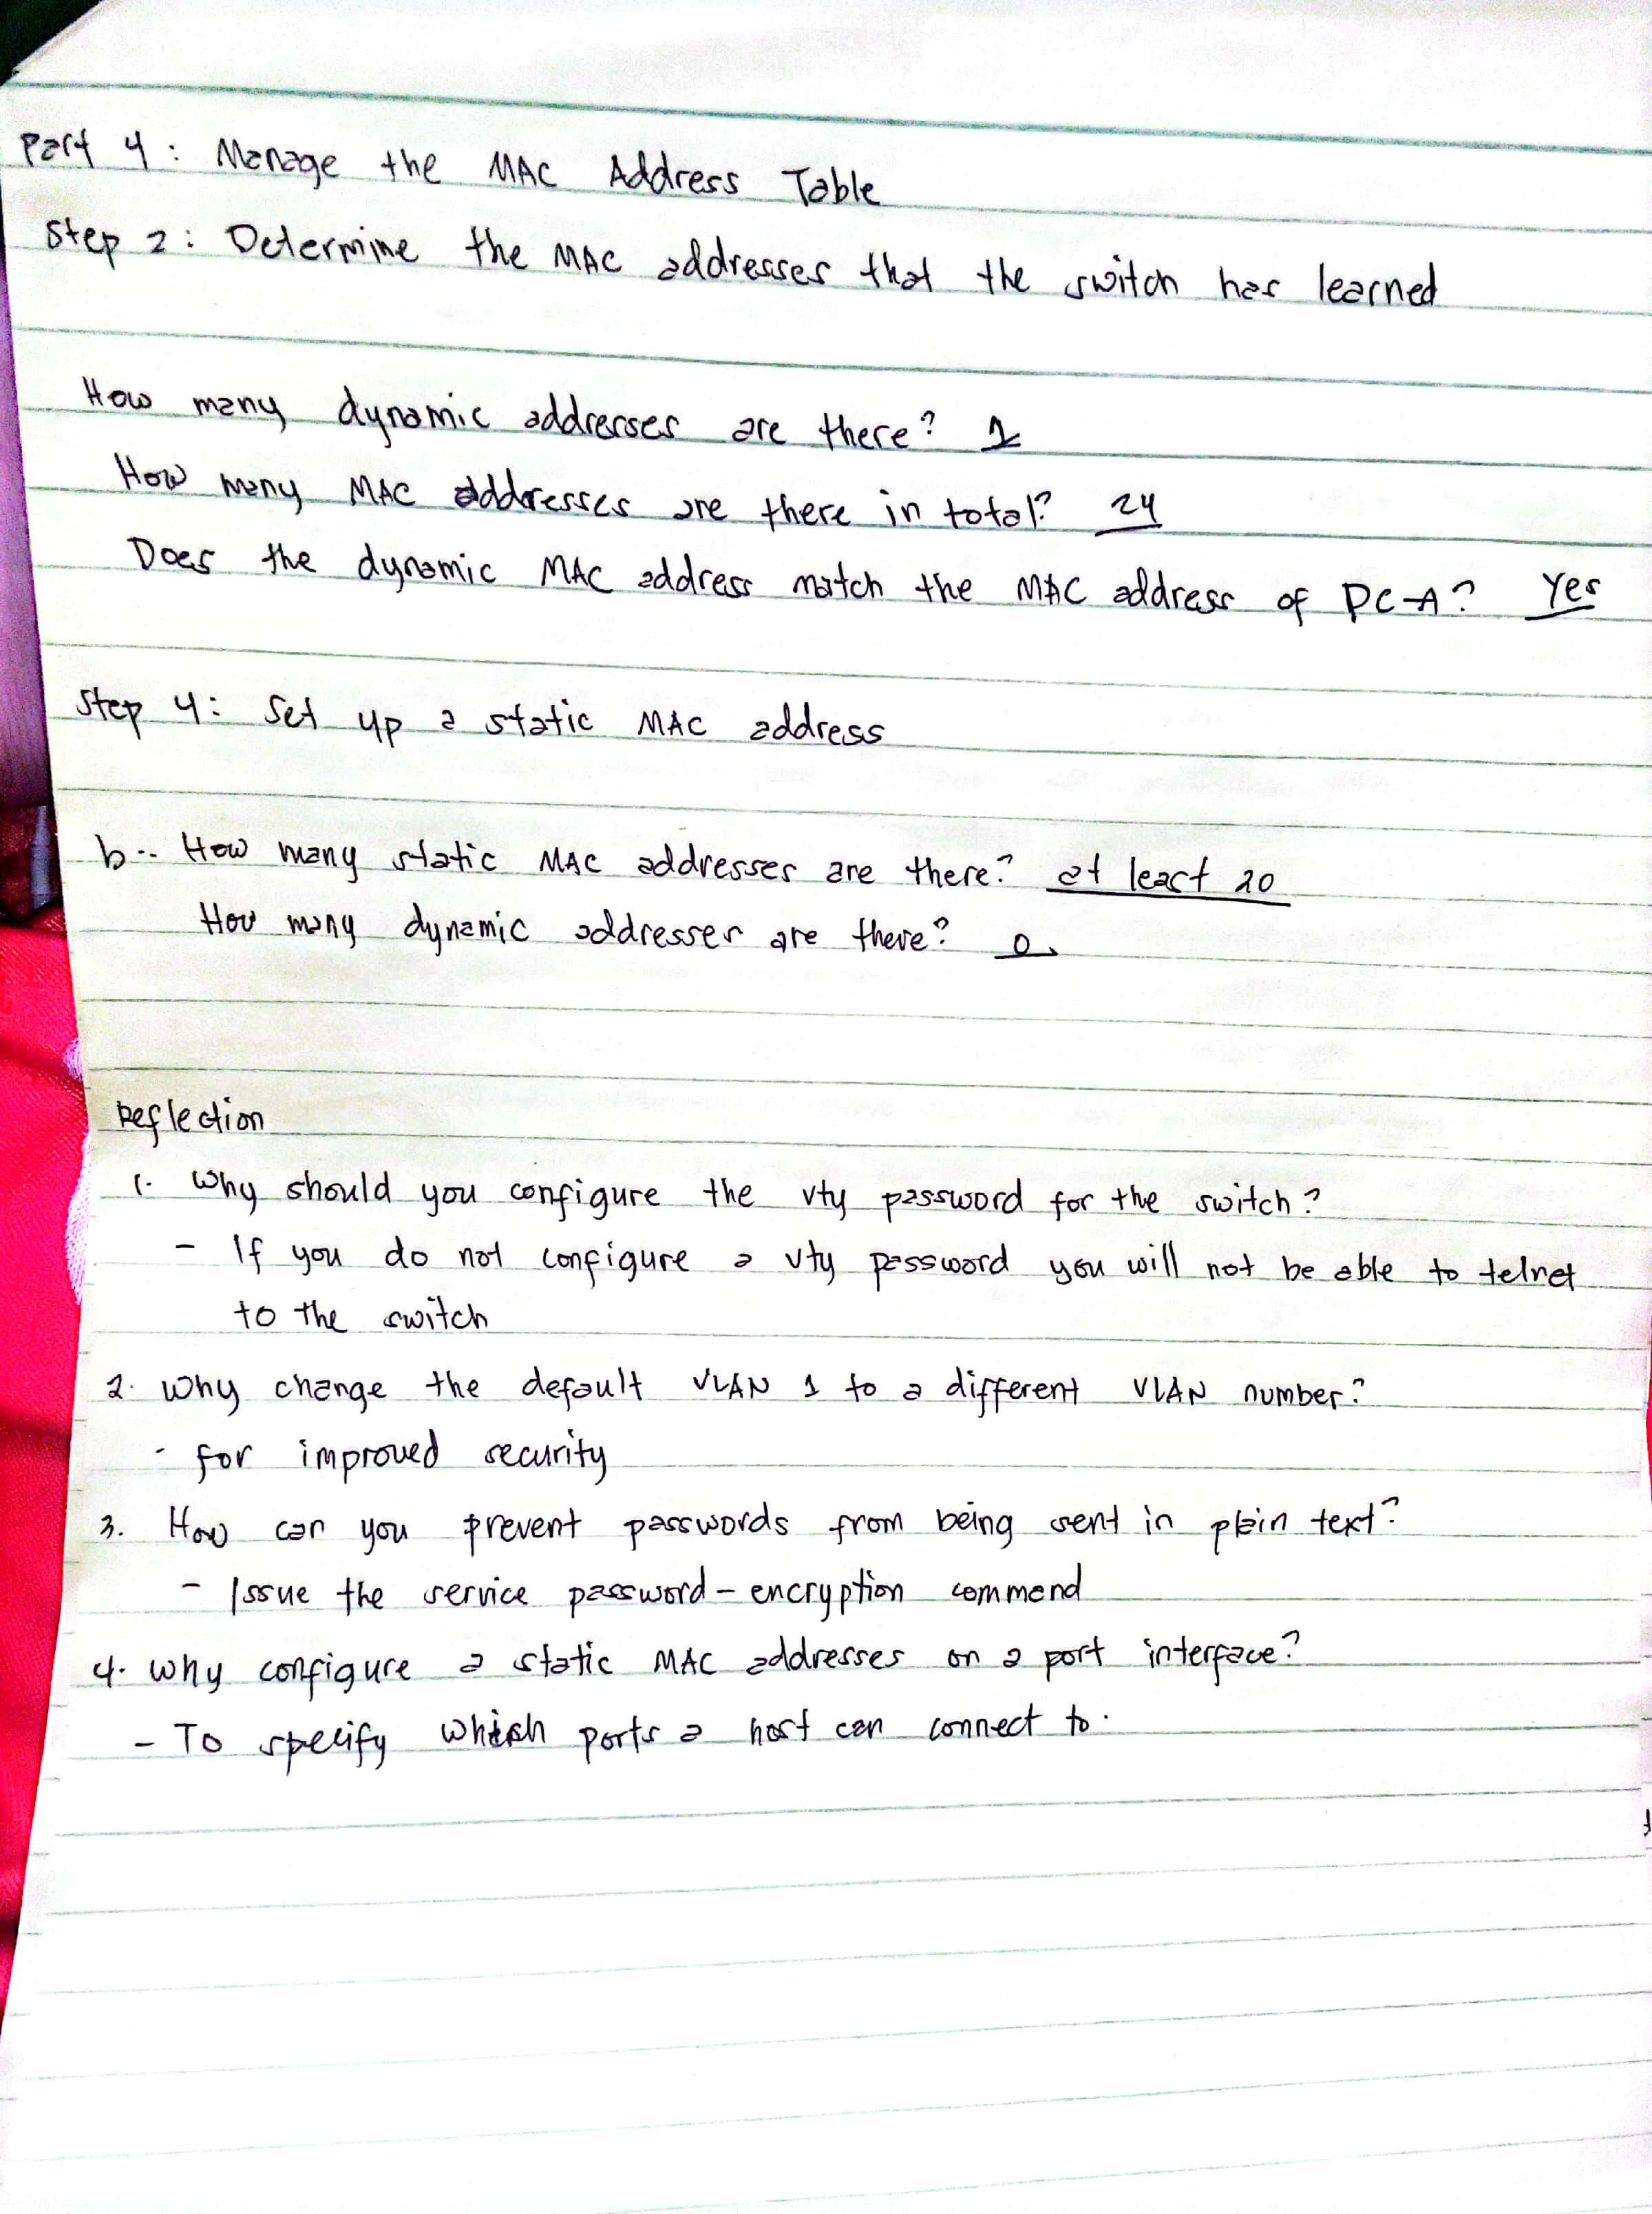 Part 4 : Manage the MAC Address Table
Step 2 : Determine the MAC addresses that the switch has learned
How many dynamic addresses are there? 1
How many MAC addresses are there in total? 24
Does the dynamic MAC address match the MAC address of PC-A? Yes
Step 4 : Set up a static MAC address
b.. How many static MAC addresses are there? at least 20
How many dynamic addresses are there? 0
Reflection
1. Why should you configure the vty password for the switch?
- If you do not configure a vty password you will not be able to telnet
to the switch
2. Why change the default VLAN 1 to a different VLAN number?
- for improved security
3. How can you prevent passwords from being sent in plain text?
- Issue the service password-encryption command
4. Why configure a static MAC addresses on a port interface?
- To specify which ports a host can connect to.